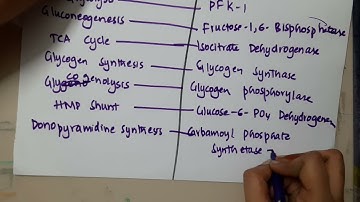 PFK-1
Gluconeogenesis Fructose-1,6-Bisphosphatase
TCA Cycle Isocitrate Dehydrogenase
Glycogen Synthesis Glycogen Synthase
Glycogenolysis Glycogen phosphorylase
HMP Shunt Glucose-6-PO4 Dehydrogenase
Donopyramidine Synthesis Carbamoyl Phosphate
Synthetase